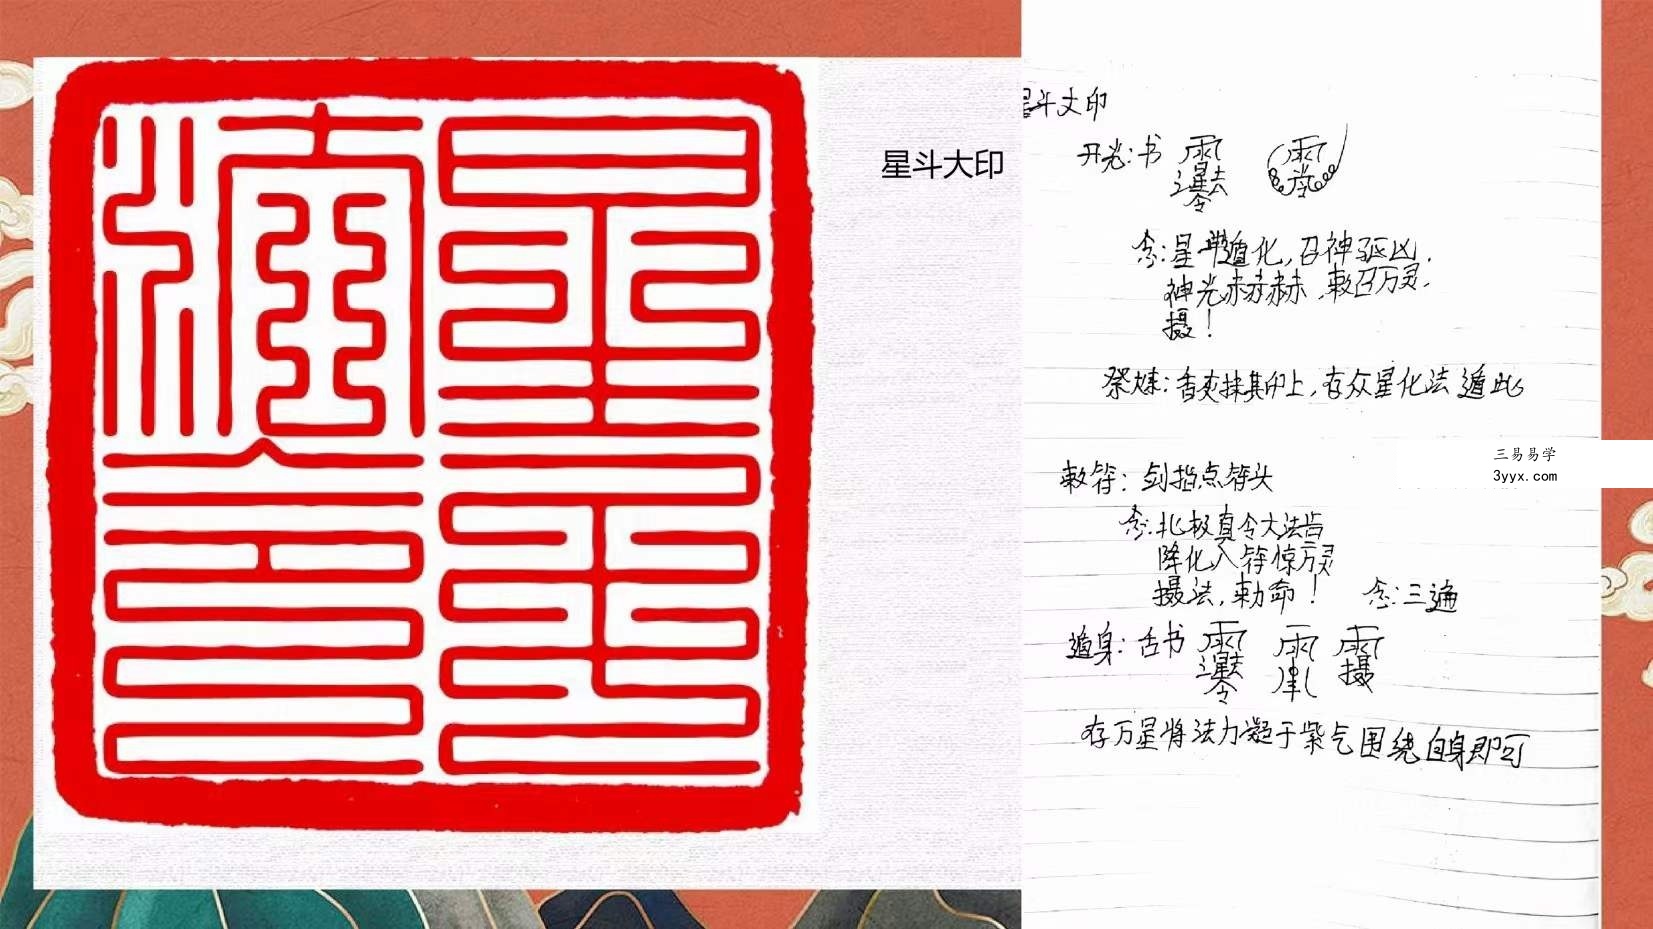 星斗大印
星斗大印
开光：书
念：星斗遁化，召神驱凶．
神光赫赫，敕召万灵，
摄！
祭炼：香灰抹其印上，存众星化法遁此
三易易学
3yyx.com
敕符：剑指点符头
念：北极真令大法旨
降化入符惊万灵
摄法，敕命！ 念：三遍
遁身：舌书
存万星将法力凝于紫气围绕自身即可